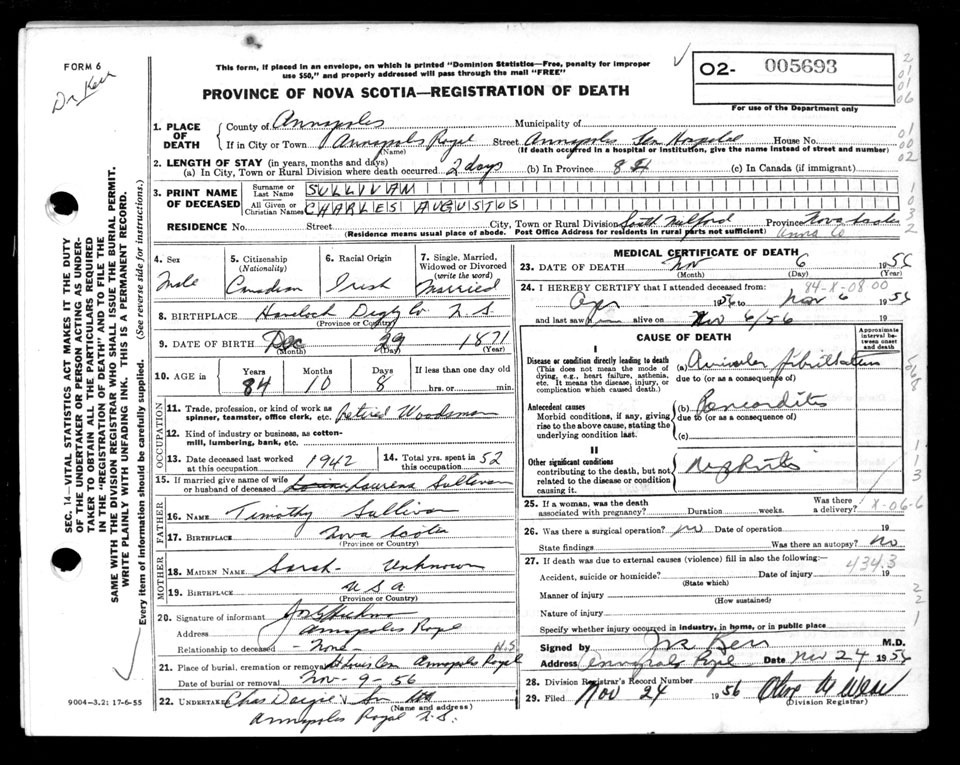 FORM 6
Dr Kerr
This form, if placed in an envelope, on which is printed "Dominion Statistics—Free, penalty for improper
use $50," and properly addressed will pass through the mail "FREE"
PROVINCE OF NOVA SCOTIA—REGISTRATION OF DEATH
02- 005693
For use of the Department only
SEC. 14—VITAL STATISTICS ACT MAKES IT THE DUTY
OF THE UNDERTAKER OR PERSON ACTING AS UNDER-
TAKER TO OBTAIN ALL THE PARTICULARS REQUIRED
IN THE "REGISTRATION OF DEATH" AND TO FILE THE
SAME WITH THE DIVISION REGISTRAR WHO SHALL ISSUE THE BURIAL PERMIT.
WRITE PLAINLY WITH UNFADING INK. THIS IS A PERMANENT RECORD.
Every item of information should be carefully supplied. (See reverse side for instructions.)
1. PLACE OF DEATH County of Annapolis Municipality of
If in City or Town Annapolis Royal Street Annapolis Gen Hospital House No.
(Name) (If death occurred in a hospital or institution, give the name instead of street and number)
2. LENGTH OF STAY (in years, months and days)
(a) In City, Town or Rural Division where death occurred 2 days (b) In Province 84 (c) In Canada (if immigrant)
3. PRINT NAME OF DECEASED Surname or Last Name SULLIVAN
All Given or Christian Names CHARLES AUGUSTUS
RESIDENCE No. Street City, Town or Rural Division South Milford Province Nova Scotia
(Residence means usual place of abode. Post Office Address for residents in rural parts not sufficient) Anna Co
4. Sex Male
5. Citizenship (Nationality) Canadian
6. Racial Origin Irish
7. Single, Married, Widowed or Divorced (write the word) Married
8. BIRTHPLACE Havelock Digby Co N.S.
(Province or Country)
9. DATE OF BIRTH Dec 29 1871
(Month) (Day) (Year)
10. AGE in Years 84 Months 10 Days 8 If less than one day old
hrs. or min.
OCCUPATION
11. Trade, profession, or kind of work as
spinner, teamster, office clerk, etc. Retired Woodsman
12. Kind of industry or business, as cotton-
mill, lumbering, bank, etc.
13. Date deceased last worked
at this occupation 1942
14. Total yrs. spent in
this occupation 52
15. If married give name of wife
or husband of deceased Laurena Sullivan
FATHER
16. NAME Timothy Sullivan
17. BIRTHPLACE Nova Scotia
(Province or Country)
MOTHER
18. MAIDEN NAME Sarah - Unknown
19. BIRTHPLACE U S A
(Province or Country)
20. Signature of informant
Address Annapolis Royal
Relationship to deceased - None - N.S.
21. Place of burial, cremation or removal St Louis Cem Annapolis Royal
Date of burial or removal Nov - 9 - 56
22. UNDERTAKER Chas Dargie & Son
(Name and address)
Annapolis Royal N.S.
9004-3.2: 17-6-55
MEDICAL CERTIFICATE OF DEATH
23. DATE OF DEATH Nov 6 1956
(Month) (Day) (Year)
84-X-08 00
24. I HEREBY CERTIFY that I attended deceased from:
Apr 1956 to Nov 6 1956
and last saw him alive on Nov 6/56 19
CAUSE OF DEATH
Approximate interval between onset and death
I
Disease or condition directly leading to death
(This does not mean the mode of
dying, e.g., heart failure, asthenia,
etc. It means the disease, injury, or
complication which caused death.)
(a) Auricular fibrillation
due to (or as a consequence of)
Antecedent causes
Morbid conditions, if any, giving
rise to the above cause, stating the
underlying condition last.
(b) Pericarditis
due to (or as a consequence of)
(c)
II
Other significant conditions
contributing to the death, but not
related to the disease or condition
causing it.
Nephritis
25. If a woman, was the death
associated with pregnancy? Duration weeks. Was there
a delivery?
X-06-6
26. Was there a surgical operation? no Date of operation 19
State findings Was there an autopsy? No
27. If death was due to external causes (violence) fill in also the following:—
434.3
Accident, suicide or homicide? Date of injury 19
(State which)
Manner of injury
(How sustained)
Nature of injury
Specify whether injury occurred in industry, in home, or in public place
Signed by Kerr M.D.
Address Annapolis Royal Date Nov 24 1956
28. Division Registrar's Record Number
29. Filed Nov 24 1956
(Division Registrar)